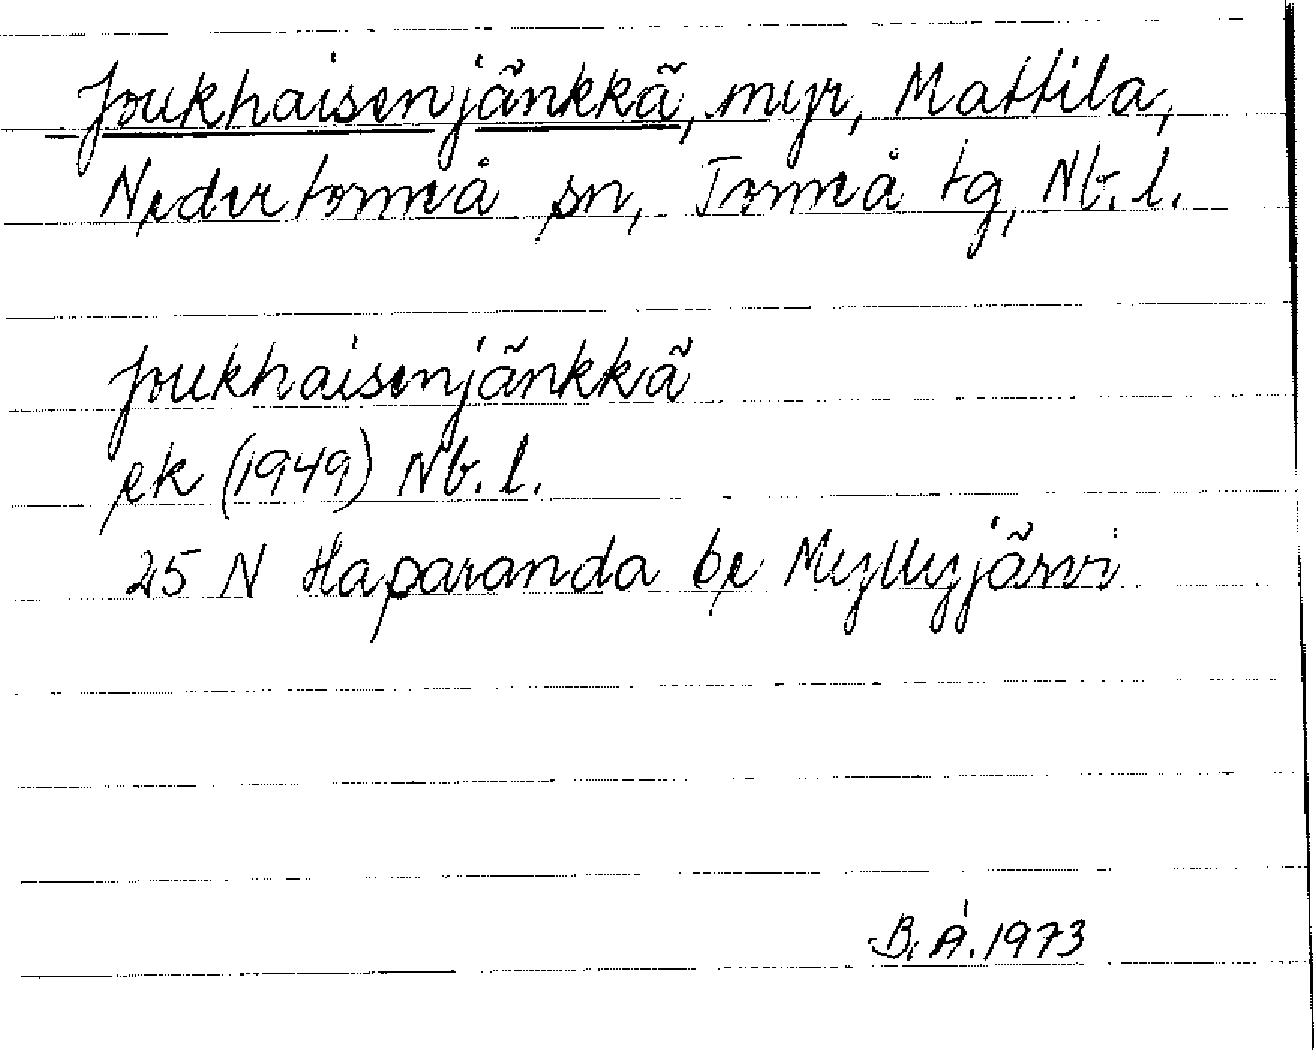 Joukhaisenjänkkä, myr, Mattila,
Nedertorneå sn, Torneå tg, Nb. l.
Joukhaisenjänkkä
ek (1949) Nb. l.
25 N Haparanda be Myllyjärvi
B. Å. 1973